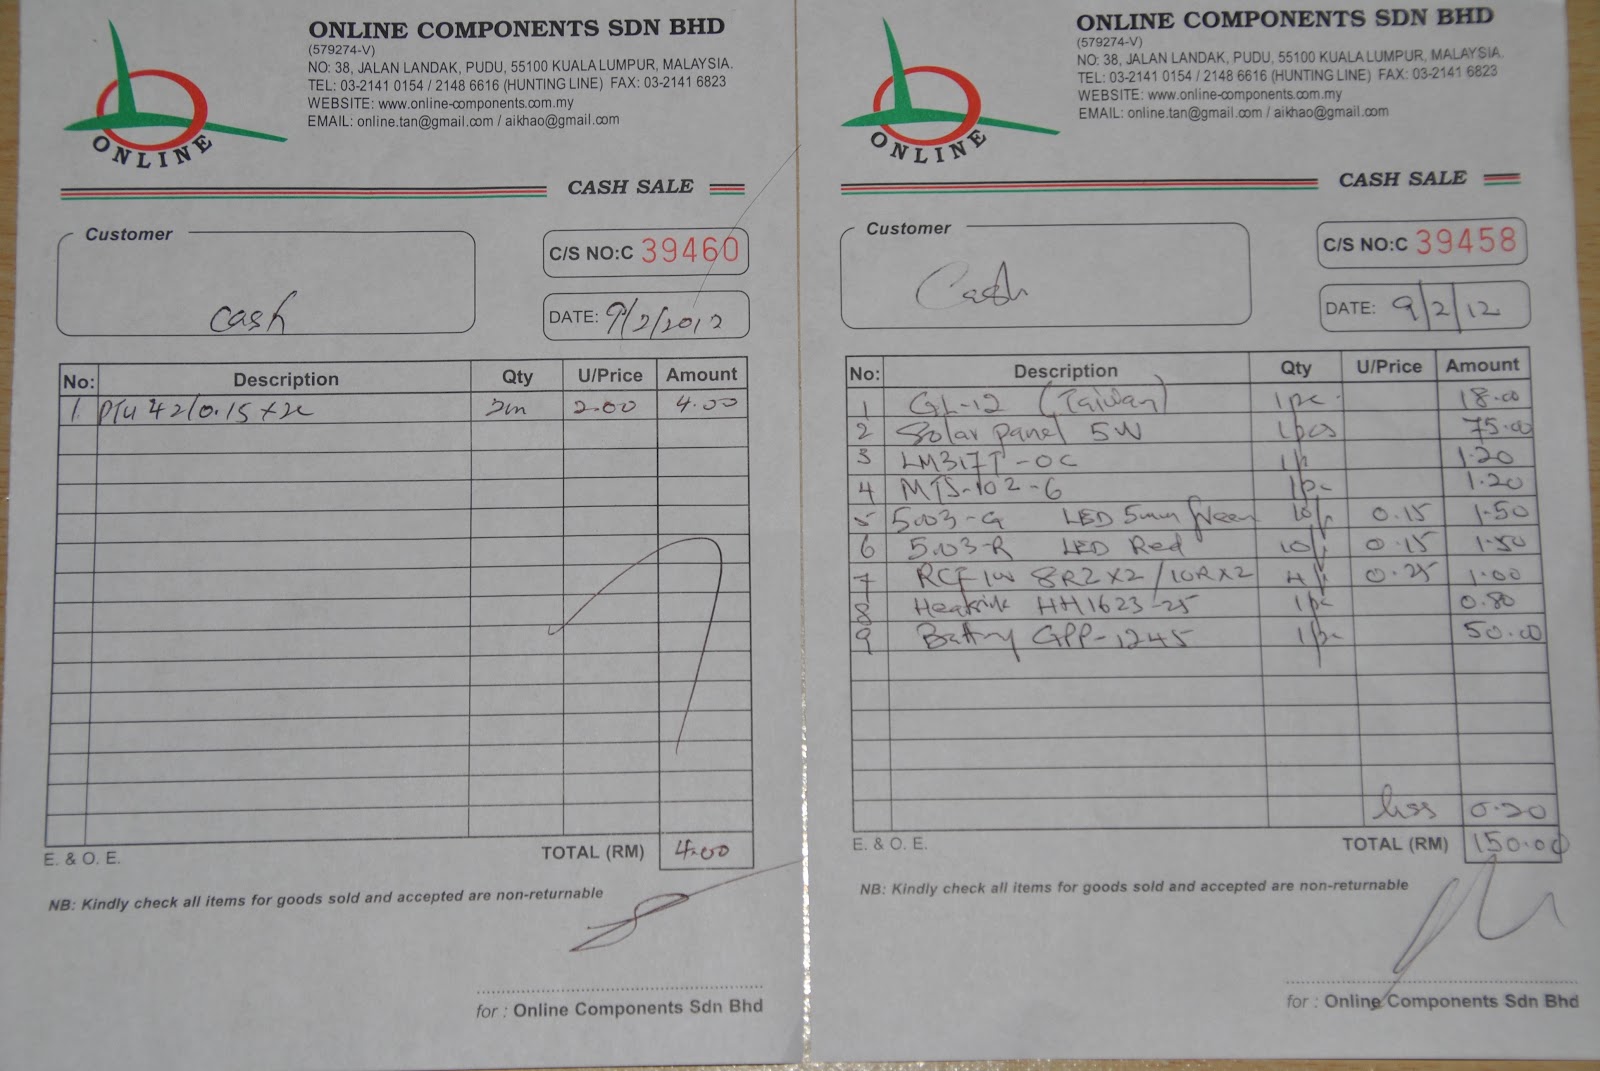 ONLINE COMPONENTS SDN BHD
(579274-V)
NO: 38, JALAN LANDAK, PUDU, 55100 KUALA LUMPUR, MALAYSIA.
TEL: 03-2141 0154 / 2148 6616 (HUNTING LINE) FAX: 03-2141 6823
WEBSITE: www.online-components.com.my
EMAIL: online.tan@gmail.com / aikhao@gmail.com
ONLINE
CASH SALE
Customer
cash
C/S NO:C 39460
DATE: 9/2/2012
No: Description Qty U/Price Amount
1. 2m 2.00 4.00
E. & O. E. TOTAL (RM) 4.00
NB: Kindly check all items for goods sold and accepted are non-returnable
for : Online Components Sdn Bhd
ONLINE COMPONENTS SDN BHD
(579274-V)
NO: 38, JALAN LANDAK, PUDU, 55100 KUALA LUMPUR, MALAYSIA.
TEL: 03-2141 0154 / 2148 6616 (HUNTING LINE) FAX: 03-2141 6823
WEBSITE: www.online-components.com.my
EMAIL: online.tan@gmail.com / aikhao@gmail.com
ONLINE
CASH SALE
Customer
Cash
C/S NO:C 39458
DATE: 9/2/12
No: Description Qty U/Price Amount
1 GL-12 (Taiwan) 1pc 18.00
2 Solar panel 5W 1pcs 75.00
3 LM317T-OC 1p 1.20
4 MTS-102-G 1pc 1.20
5 5.03-G LED 5mm Green 10p 0.15 1.50
6 5.03-R LED Red 10p 0.15 1.50
7 RCF 1W 8R2X2/10RX2 4p 0.25 1.00
8 Heatsink HH1623-25 1pc 0.80
9 Battery GPP-1245 1pc 50.00
less 0.20
E. & O. E. TOTAL (RM) 150.00
NB: Kindly check all items for goods sold and accepted are non-returnable
for : Online Components Sdn Bhd